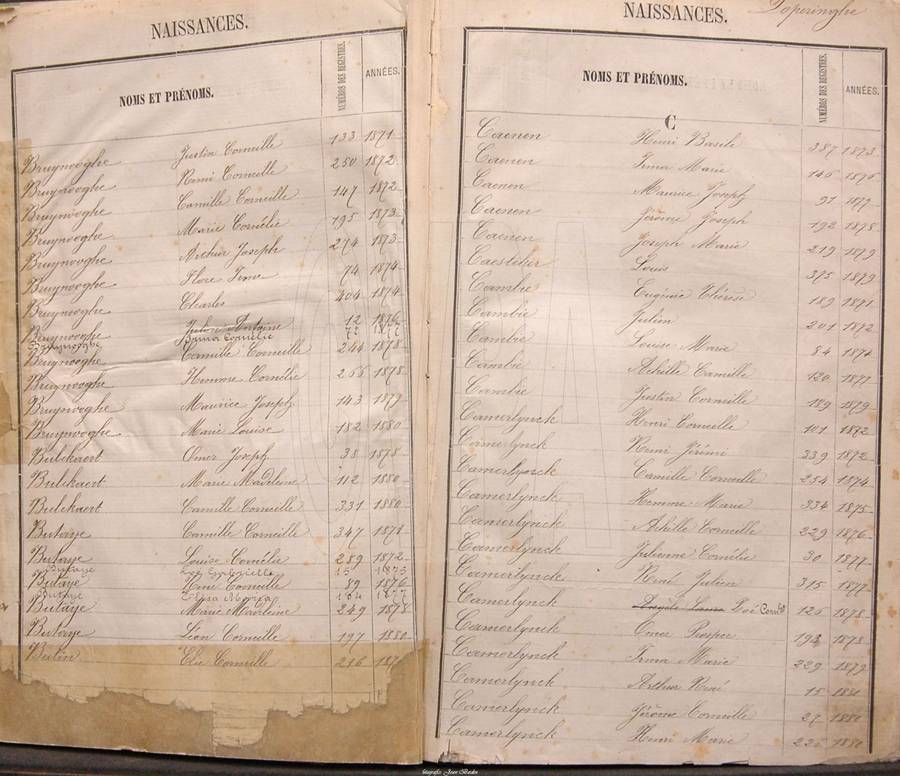 NAISSANCES.
NOMS ET PRÉNOMS. NUMÉROS DES REGISTRES. ANNÉES.
Bruynooghe Justin Corneille 133 1871
Bruynooghe Remi Corneille 250 1872
Bruynooghe Camille Corneille 147 1872
Bruynooghe Marie Cornélie 195 1873
Bruynooghe Arthur Joseph 274 1873
Bruynooghe Flore Irma 74 1874
Bruynooghe Charles 404 1874
Bruynooghe Antoine 12 1876
Bruynooghe Cornélie 72 1877
Bruynooghe Camille Corneille 244 1878
Bruynooghe Hemme Cornélie 266 1878
Bruynooghe Maurice Joseph 143 1879
Bruynooghe Marie Louise 182 1880
Bulckaert Omer Joseph 38 1878
Bulckaert Marie Madeleine 112 1880
Bulckaert Camille Corneille 331 1880
Butaye Camille Corneille 347 1871
Butaye Louise Cornélie 289 1872
Butaye 15 1875
Butaye René Corneille 89 1876
Butaye 164 1877
Butaye Marie Madeleine 249 1878
Butaye Léon Corneille 197 1880
Butin Elie Corneille 216
NAISSANCES. Poperinghe
NOMS ET PRÉNOMS. NUMÉROS DES REGISTRES. ANNÉES.
C
Caenen Henri Basile 387 1873
Caenen Irma Marie 146 1876
Caenen Maurice Joseph 91 1879
Caenen Jérôme Joseph 192 1878
Caenen Joseph Marie 219 1879
Caesteker Louis 375 1879
Cambie Eugénie Thérèse 189 1871
Cambie Julien 201 1872
Cambie Louise Marie 84 1874
Cambie Achille Camille 120 1877
Cambie Justin Corneille 189 1879
Camerlynck Henri Corneille 101 1872
Camerlynck Remi Jérémi 339 1872
Camerlynck Camille Corneille 254 1874
Camerlynck Hemme Marie 334 1875
Camerlynck Achille Corneille 229 1876
Camerlynck Julienne Cornélie 30 1877
Camerlynck René Julien 315 1877
Camerlynck Zoé 126 1878
Camerlynck Omer Prosper 193 1878
Camerlynck Irma Marie 229 1879
Camerlynck Arthur René 15 1881
Camerlynck Jérôme Corneille 27 1880
Camerlynck Henri Marie 225 1880